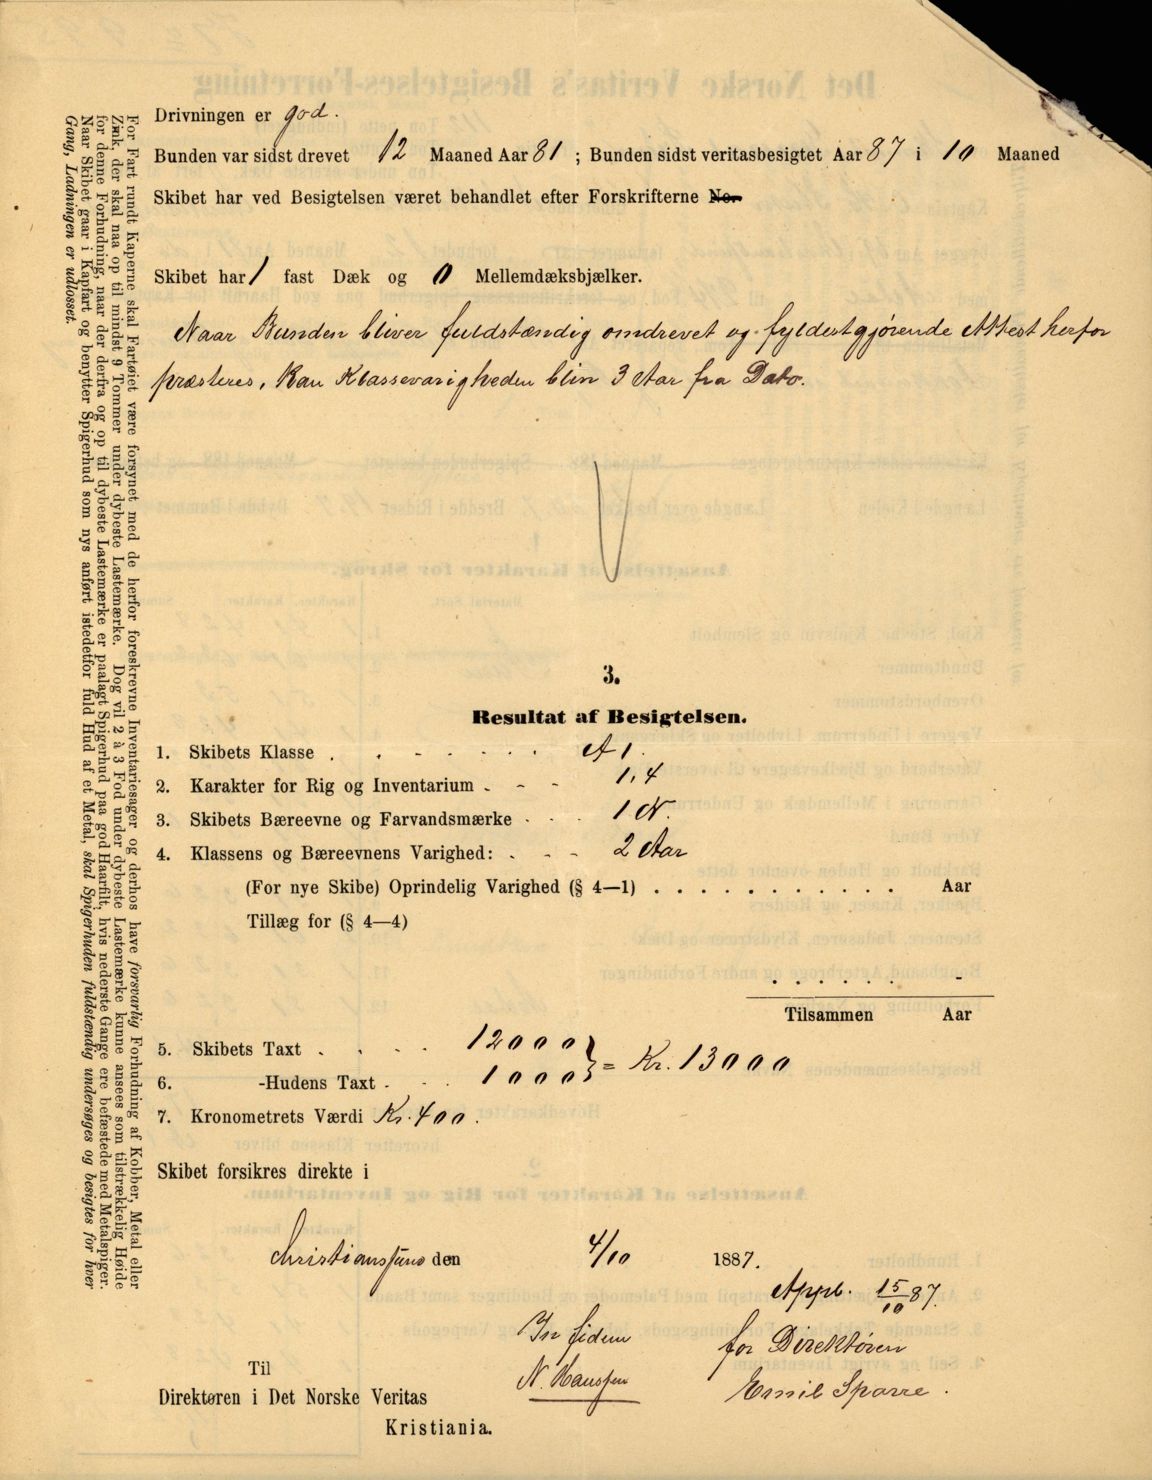 Drivningen er god.
Bunden var sidst drevet 12 Maaned Aar 81 ; Bunden sidst veritasbesigtet Aar 87 i 10 Maaned
Skibet har ved Besigtelsen været behandlet efter Forskrifterne No.
Skibet har 1 fast Dæk og 0 Mellemdæksbjælker.
Naar Bunden bliver fuldstændig omdrevet og fyldestgjørende Attest herfor
præsteres, kan Klassevarigheden blive 3 Aar fra Dato.
3.
Resultat af Besigtelsen.
1. Skibets Klasse . . - - - . . A 1.
2. Karakter for Rig og Inventarium - - - 1,4
3. Skibets Bæreevne og Farvandsmærke - . . 1 N.
4. Klassens og Bæreevnens Varighed: . - - 2 Aar
(For nye Skibe) Oprindelig Varighed (§ 4—1) . . . . . . . . . . . Aar
Tillæg for (§ 4—4)
. . . . . . -
Tilsammen Aar
5. Skibets Taxt . . . . 12000 } = Kr. 13000
6. -Hudens Taxt - . . 1000
7. Kronometrets Værdi Kr. 400.
Skibet forsikres direkte i
Christianssund den 4/10 1887.
Appb. 15/10 87.
In fidem
for Direktøren
Til
N. Hanssen
Emil Sparre.
Direktøren i Det Norske Veritas
Kristiania.
For Fart rundt Kaperne skal Fartøiet være forsynet med de herfor foreskrevne Inventariesager og derhos have forsvarlig Forhudning af Kobber, Metal eller
Zink, der skal naa op til mindst 9 Tommer under dybeste Lastemærke. Dog vil 2 à 3 Fod under dybeste Lastemærke kunne ansees som tilstrækkelig Høide
for denne Forhudning, naar der derfra og op til dybeste Lastemærke er paalagt Spigerhud paa god Haarfilt, hvis nederste Gange ere befæstede med Metalspiger.
Naar Skibet gaar i Kapfart og benytter Spigerhud som nys anført istedetfor fuld Hud af et Metal, skal Spigerhuden fuldstændig undersøges og besigtes for hver
Gang, Ladningen er udlosset.